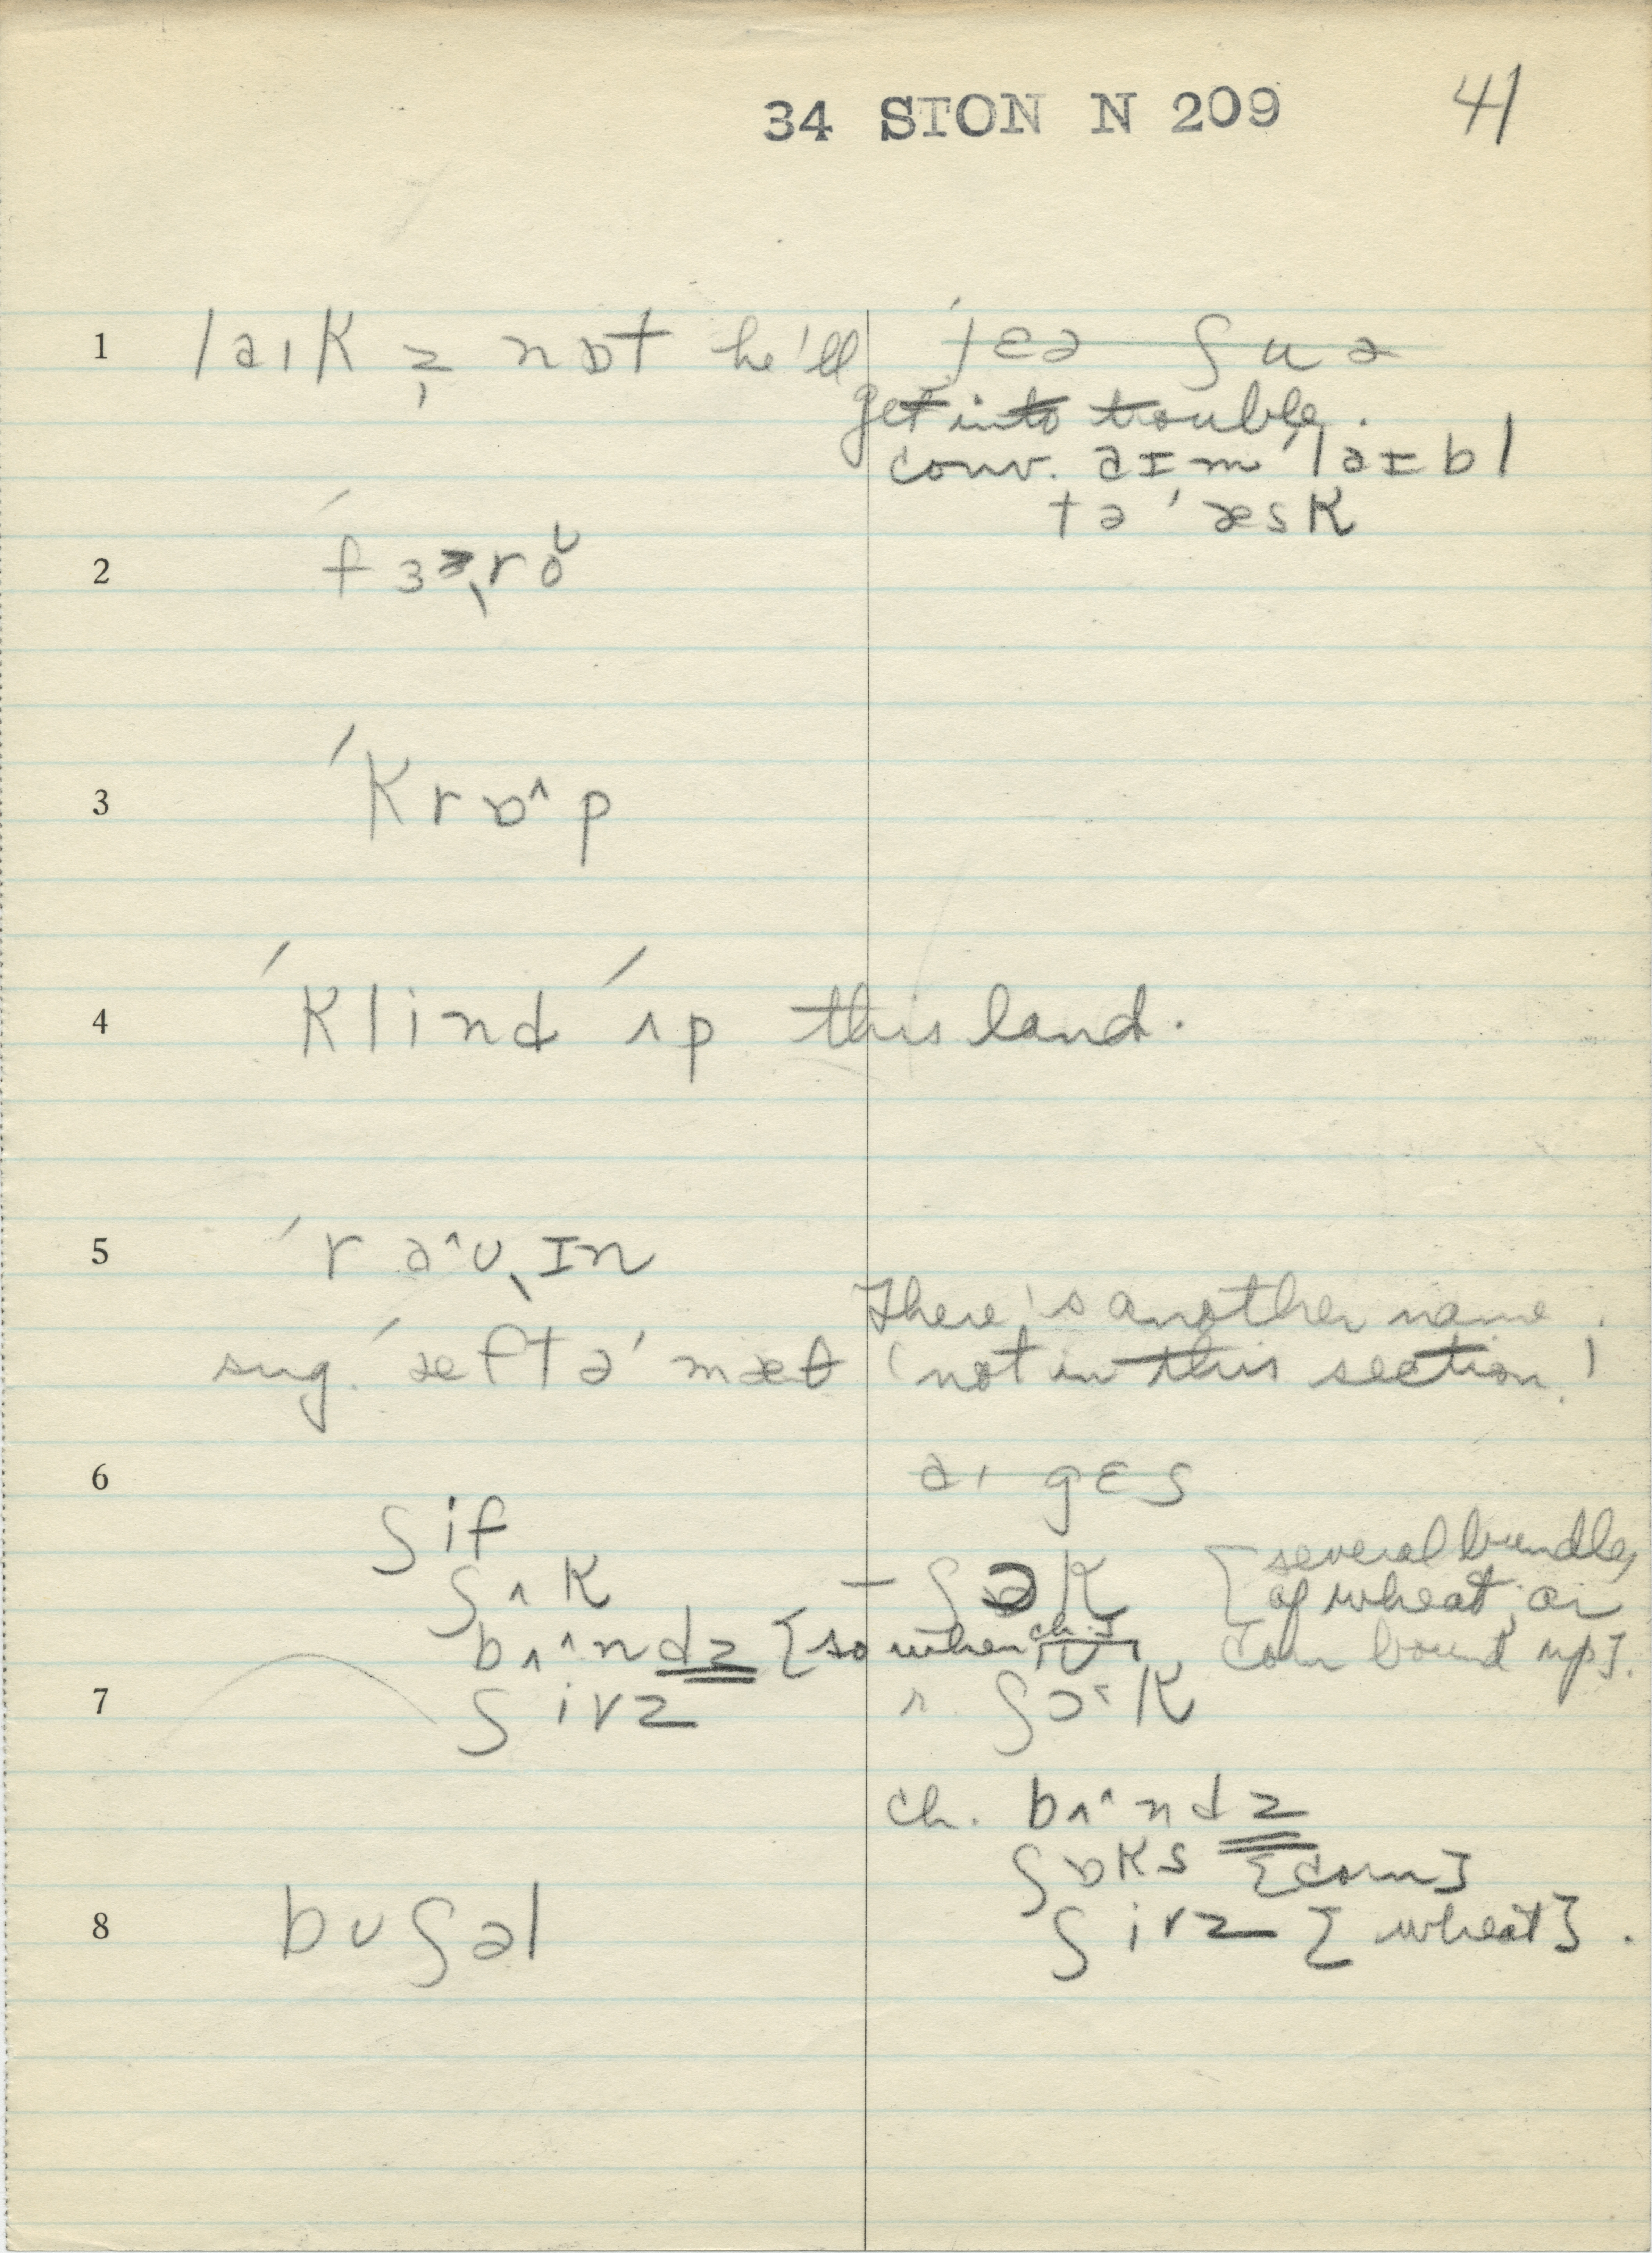 34 STON N 209 41
1 laɪk ə̩ nɒt he'll ˈjɛə ʃuə
get into trouble.
conv. aɪm ˈlaɪbl
tə ˈæsk
2 ˈfɜəˌrŏ
3 ˈkrɒ^p
4 ˈklind ˈʌp this land.
5 ˈra^ʊˌɪn
There's another name.
sug. ˈæftəˈmæθ (not in this section.)
6 aɪ gɛs
ʃif
ʃʌk – ʃək [several bundles
bʌ^ndz [so when ch.] of wheat, or
corn bound up].
7 ʃivz ʃɔˇk
ch. bʌ^ndz
ʃɒks [corn]
8 bʊʃəl ʃivz [wheat].